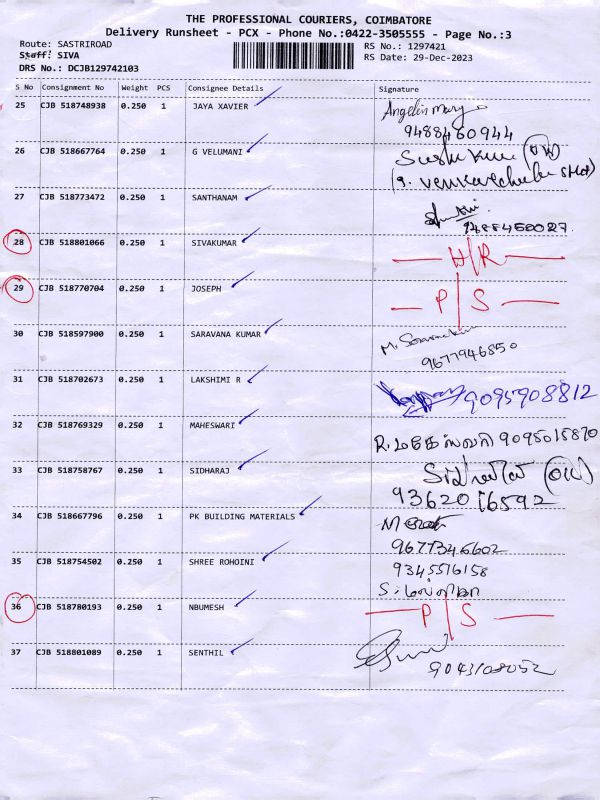 THE PROFESSIONAL COURIERS, COIMBATORE
Delivery Runsheet - PCX - Phone No.:0422-3505555 - Page No.:3
Route: SASTRIROAD
RS No.: 1297421
Staff: SIVA
RS Date: 29-Dec-2023
DRS No.: DCJB129742103
S No Consignment No Weight PCS Consignee Details Signature
25 CJB 518748938 0.250 1 JAYA XAVIER Angelin mary
9488480944
26 CJB 518667764 0.250 1 G VELUMANI
27 CJB 518773472 0.250 1 SANTHANAM
28 CJB 518801066 0.250 1 SIVAKUMAR H/R
29 CJB 518770704 0.250 1 JOSEPH P/S
30 CJB 518597900 0.250 1 SARAVANA KUMAR
9677946850
31 CJB 518702673 0.250 1 LAKSHIMI R 9095908812
32 CJB 518769329 0.250 1 MAHESWARI R. மகேஸ்வரி 9095015870
33 CJB 518758767 0.250 1 SIDHARAJ
9362016592
34 CJB 518667796 0.250 1 PK BUILDING MATERIALS
9677346602
35 CJB 518754502 0.250 1 SHREE ROHOINI 9345516158
36 CJB 518780193 0.250 1 NBUMESH P/S
37 CJB 518801089 0.250 1 SENTHIL
9043108052